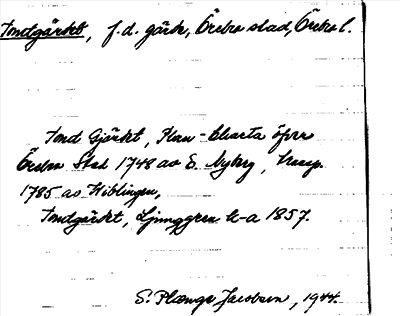 Tomtgärdet, f.d. gärde, Örebro stad, Örebro l.
Tomt Gjärdet, Plan-Charta öfver
Örebro Stad 1748 av E. Nyberg,
1785 av Wiblingen,
Tomtgärdet, Ljunggren k-a 1857.
S. Plænge Jacobson, 1944